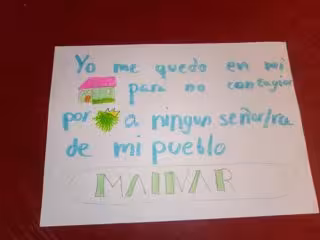 Yo me quedo en mi
para no contagiar
por a ningun señor/ra
de mi pueblo
MALLVAR